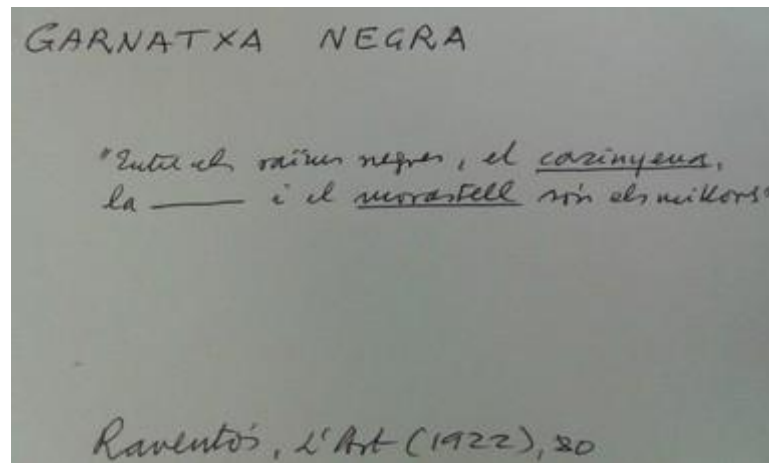 GARNATXA NEGRA
"Entre els raïms negres, el carinyena,
la —— i el morastell són els millors"
Raventós, L'Art (1922), 80